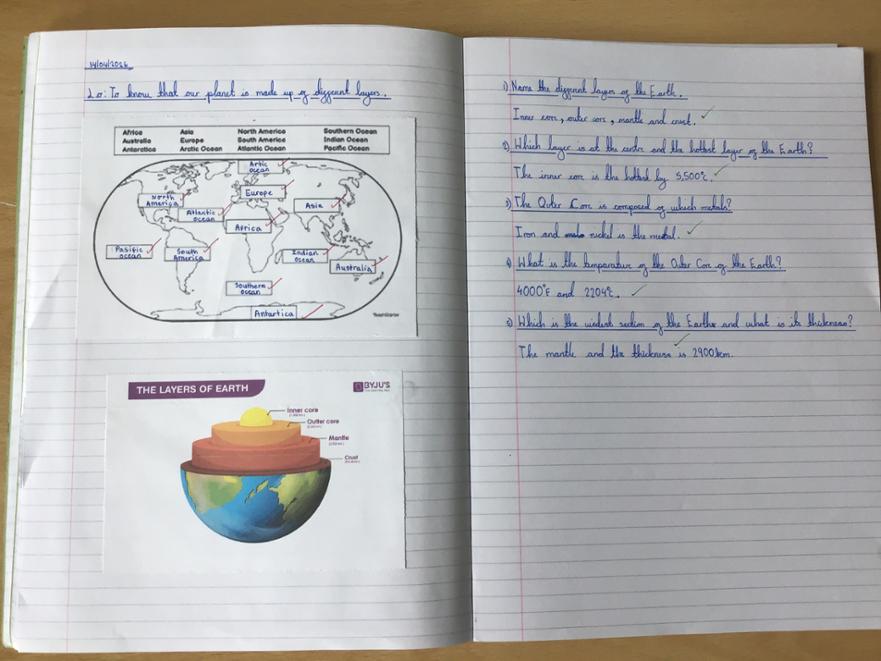 14/04/2026
Lo: To know that our planet is made up of different layers.
Africa Asia North America Southern Ocean
Australia Europe South America Indian Ocean
Antarctica Arctic Ocean Atlantic Ocean Pacific Ocean
Artic
ocean
Europe
North
America
Asia
Atlantic
ocean
Africa
Pasific
ocean
South
America
Indian
Ocean
Australia
Southern
ocean
Antartica
THE LAYERS OF EARTH
BYJU'S
Inner core
Outter core
Mantle
Crust
1) Name the different layers of the Earth.
Inner core, outer core, mantle and crust.
2) Which layer is at the centre and the hottest layer of the Earth?
The inner core is the hottest by 5,500°c.
3) The Outer Core is composed of which metals?
Iron and nickel is the metal.
4) What is the temperature of the Outer Core of the Earth?
4000°F and 2204°c.
5) Which is the widest section of the Earth and what is its thickness?
The mantle and the thickness is 2900km.